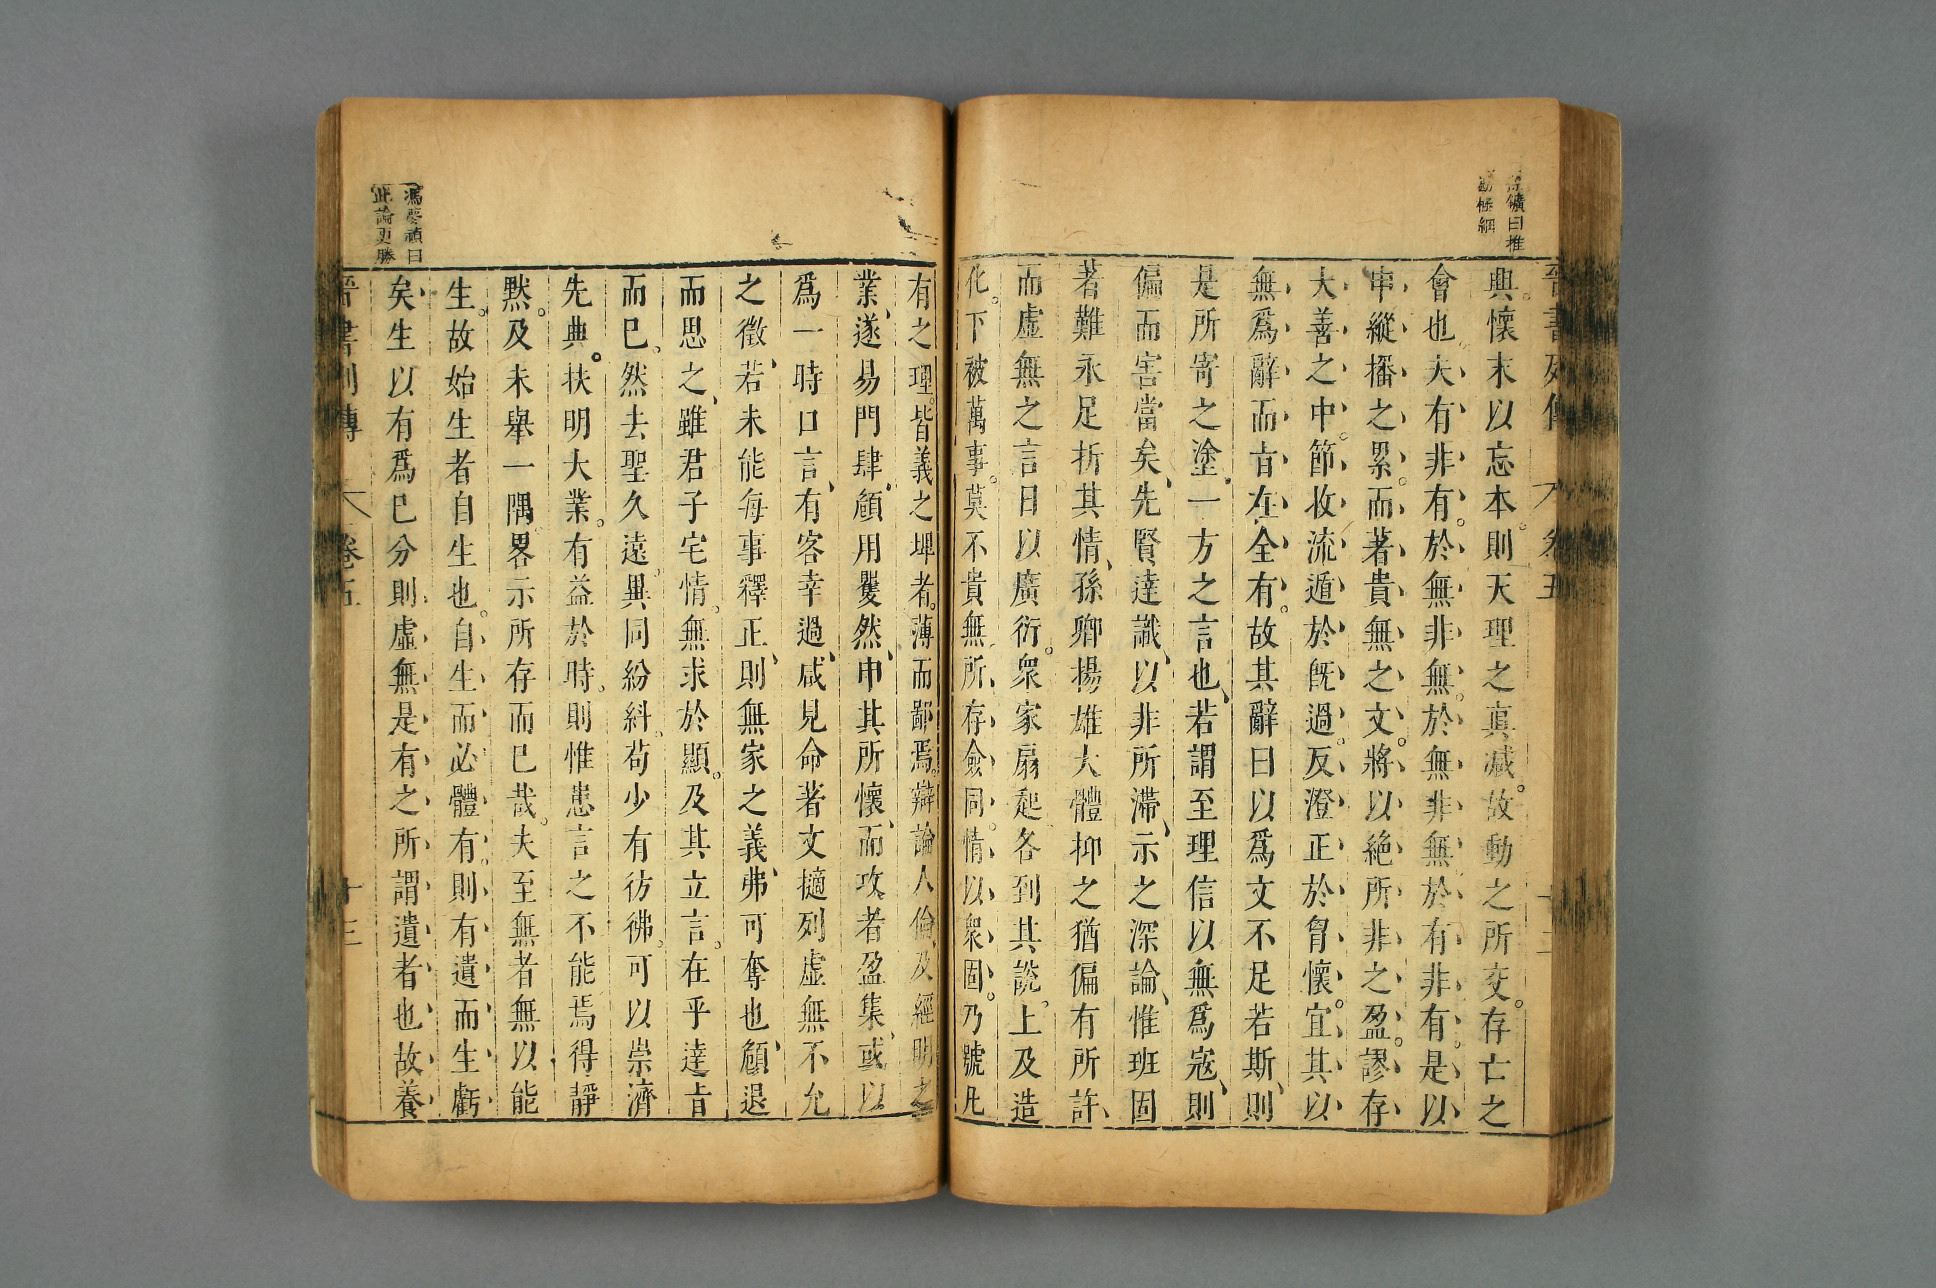 鑛曰推
勘極細
晉書列傳 卷五 十二
興懷末以忘本則天理之真減故動之所交存亡之
會也夫有非有於無非無於無非無於有非有是以
申縱播之累而著貴無之文將以絶所非之盈謬存
大善之中節收流遁於既過反澄正於胷懷宜其以
無爲辭而旨在全有故其辭曰以爲文不足若斯則
是所寄之塗一方之言也若謂至理信以無爲宼則
偏而害當矣先賢達識以非所滯示之深論惟班固
著難永足折其情孫卿揚雄大體抑之猶偏有所許
而虛無之言日以廣衍衆家扇起各到其說上及造
化下被萬事莫不貴無所存僉同情以衆固乃號凡
有之理皆義之埤者薄而鄙焉辯論人倫及經明之
業遂易門肆頠用矍然申其所懷而攻者盈集或以
爲一時口言有客幸過咸見命著文擿列虛無不允
之徵若未能每事釋正則無家之義弗可奪也頠退
而思之雖君子宅情無求於顯及其立言在乎達旨
而已然去聖久遠異同紛糾苟少有彷彿可以崇濟
先典扶明大業有益於時則惟患言之不能焉得靜
默及未舉一隅畧示所存而已哉夫至無者無以能
生故始生者自生也自生而必體有則有遺而生虧
矣生以有爲已分則虛無是有之所謂遺者也故養
馮夢禎曰
此論更勝
晉書列傳 卷五 十三